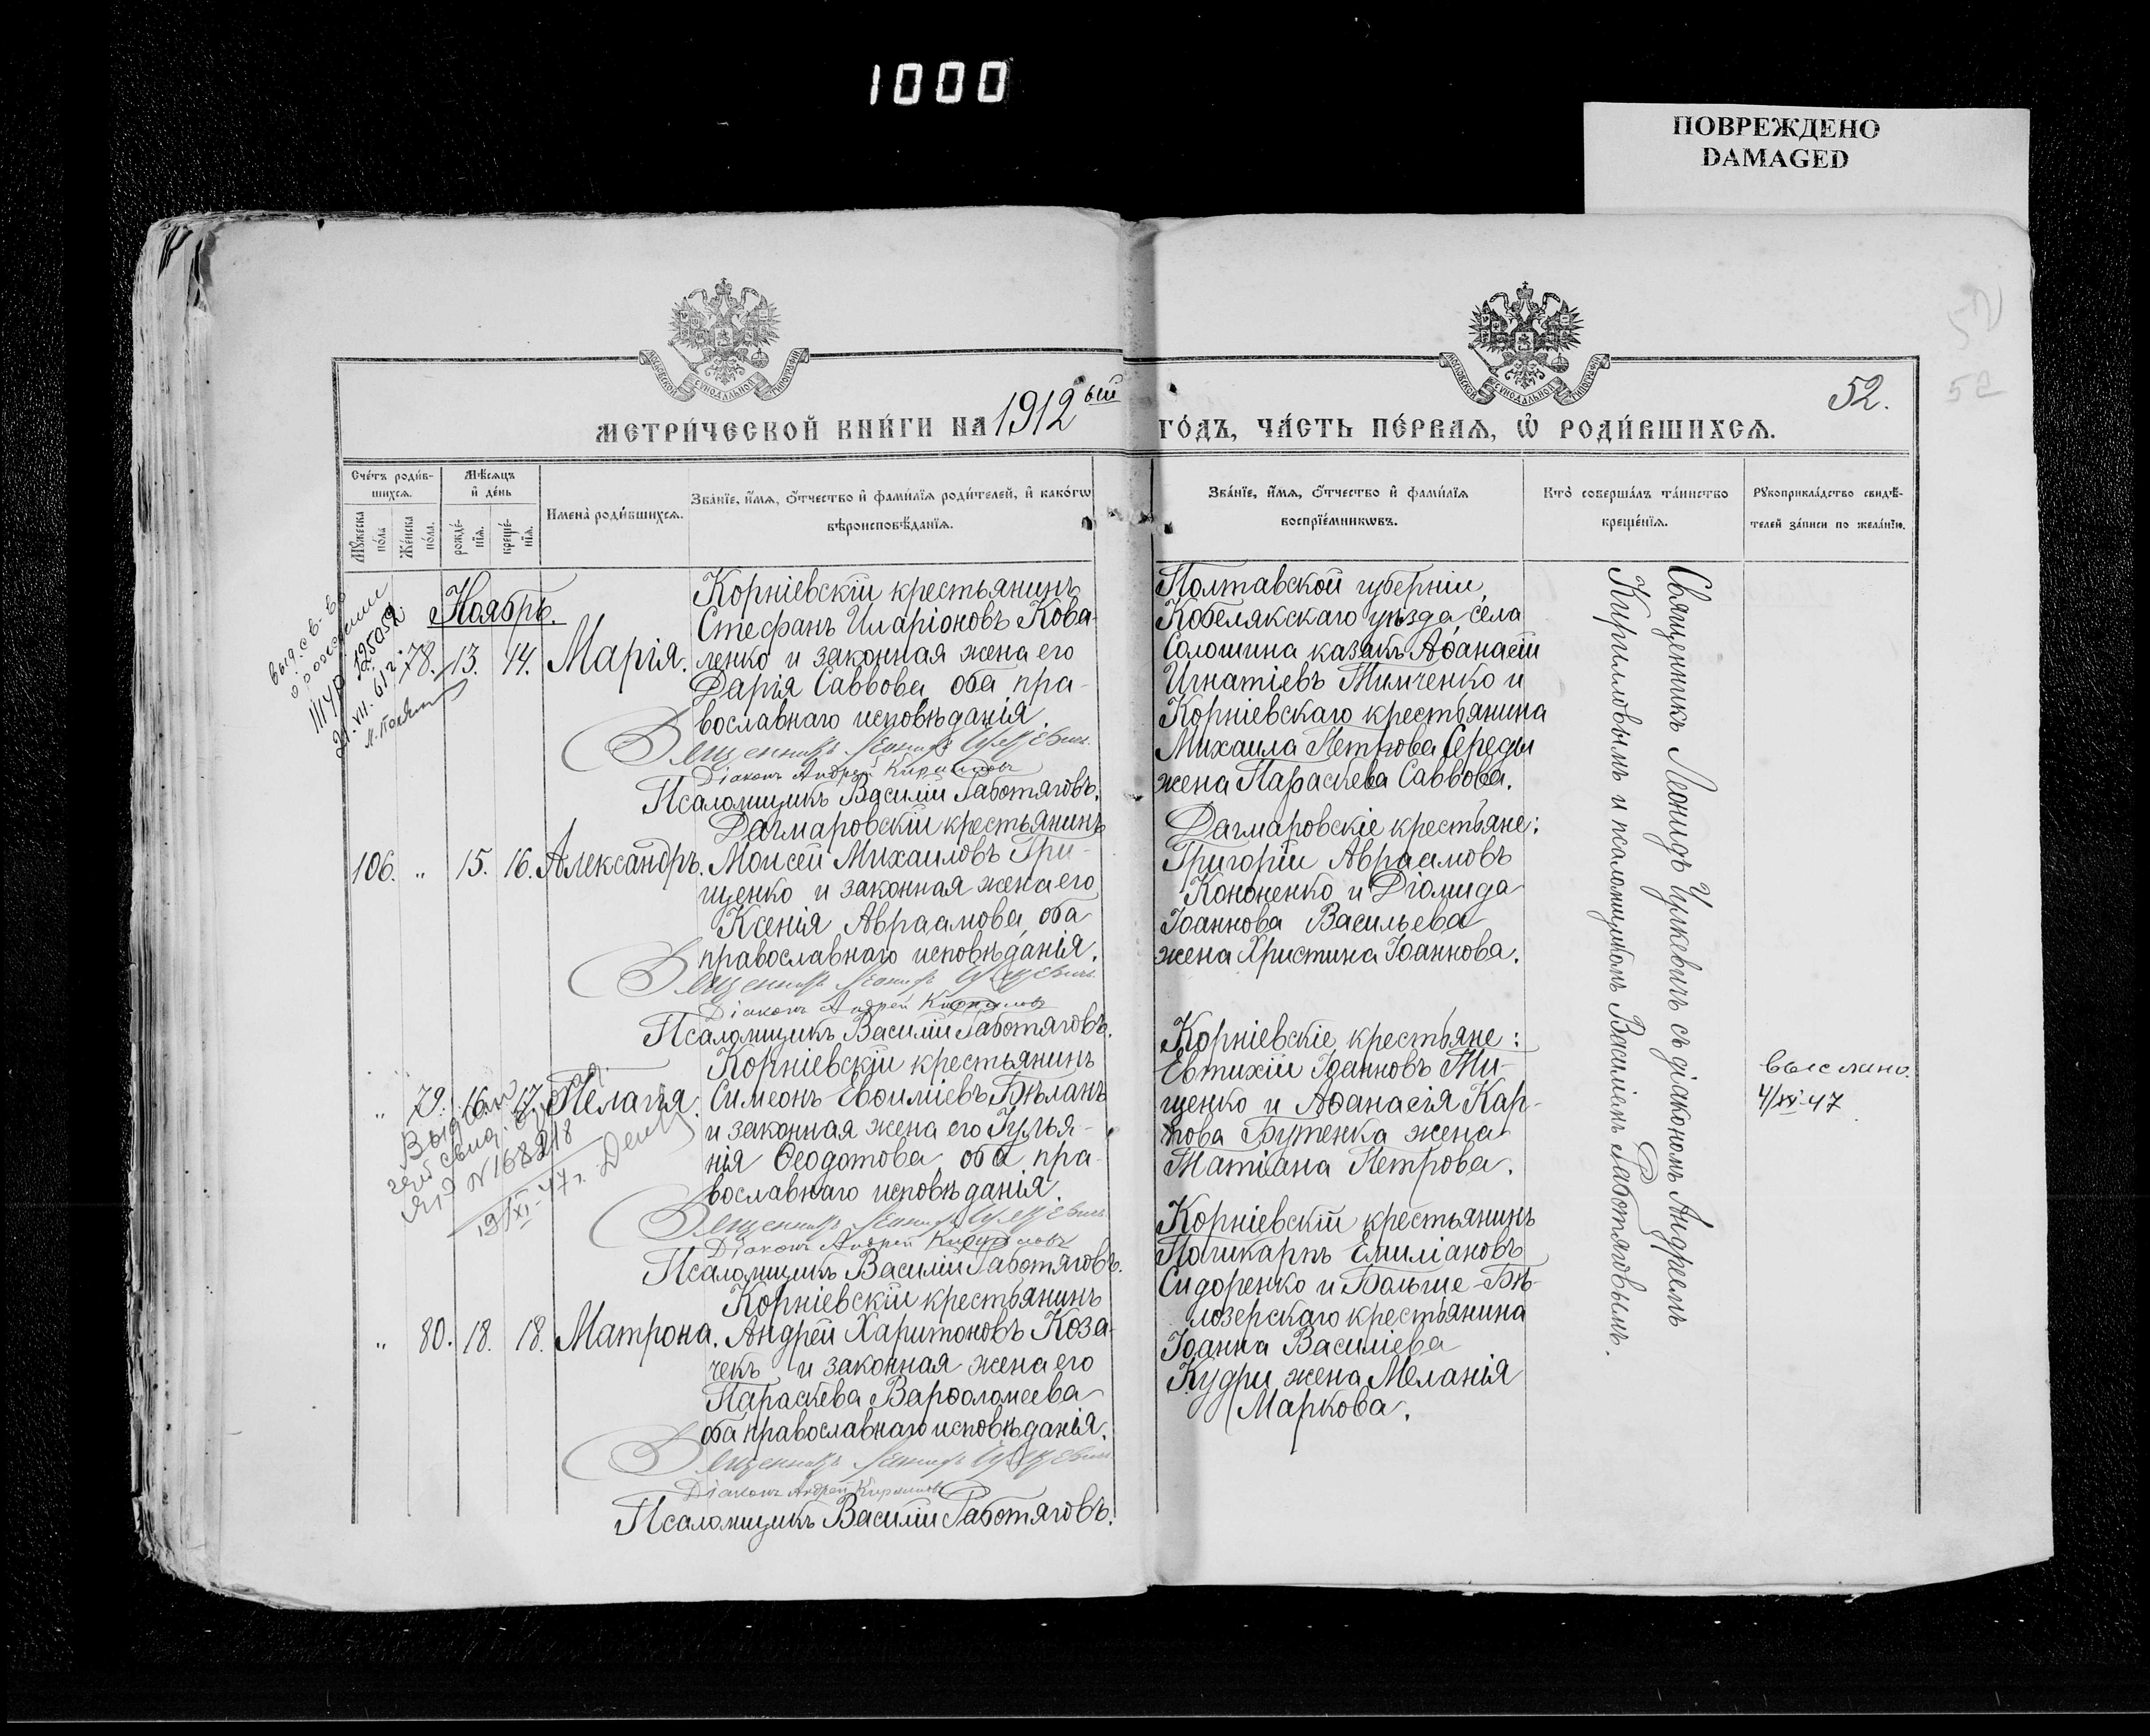 1000
ПОВРЕЖДЕНО
DAMAGED
МОСКОВСКОЙ СѴНОДАЛЬНОЙ ТИПОГРАФІИ
МОСКОВСКОЙ СѴНОДАЛЬНОЙ ТИПОГРАФІИ
52
52.
МЕТРИ́ЧЕСКОЙ КНИ́ГИ НА 1912ый ГО́ДЪ, ЧА́СТЬ ПЕ́РВАѦ, Ѡ҆ РОДИ́ВШИХСѦ.
Сче́тъ роди́в-
шихсѧ.
Мꙋ́жеска
по́ла.
Же́нска
по́ла.
Мѣ́сѧцъ
и҆ де́нь
рожде́-
нїѧ.
креще́-
нїѧ.
Имена̀ роди́вшихсѧ.
Зва́нїе, и҆́мѧ, ѻ҆́тчество и҆ фами́лїѧ роди́телей, и҆ како́гѡ
вѣроисповѣ́данїѧ.
Зва́нїе, и҆́мѧ, ѻ҆́тчество и҆ фами́лїѧ
воспрїе́мникѡвъ.
Кто̀ соверша́лъ та́инство
креще́нїѧ.
Рꙋкоприкла́дство свидѣ́-
телей за́писи по жела́нїю.
Ноябрь.
78. 13. 14. Марія.
Корніевскій крестьянинъ
Стефанъ Иларіоновъ Кова-
ленко и законная жена его
Дарія Саввова, оба пра-
вославнаго исповѣданія.
Священникъ Леонидъ Чулкевичъ
Діаконъ Андрей Кириловъ
Псаломщикъ Василій Работяговъ.
Полтавской губерніи,
Кобелякскаго уѣзда, села
Солошина казакъ Аѳанасій
Игнатіевъ Тимченко и
Корніевскаго крестьянина
Михаила Петрова Середы
жена Параскева Саввова.
106. " 15. 16. Александръ.
Дагмаровскій крестьянинъ
Моисей Михаиловъ Гри-
щенко и законная жена его
Ксенія Авраамова, оба
православнаго исповѣданія.
Священникъ Леонидъ Чулкевичъ
Діаконъ Андрей Кириловъ
Псаломщикъ Василій Работяговъ.
Дагмаровскіе крестьяне:
Григорій Авраамовъ
Кононенко и Діомида
Іоаннова Васильева
жена Христина Іоаннова.
" 79. 16. 17. Пелагія.
Корніевскій крестьянинъ
Симеонъ Евѳиміевъ Бѣланъ
и законная жена его Іулья-
нія Ѳеодотова, оба пра-
вославнаго исповѣданія.
Священникъ Леонидъ Чулкевичъ
Діаконъ Андрей Кириловъ
Псаломщикъ Василій Работяговъ.
Корніевскіе крестьяне:
Евтихій Іоанновъ Ми-
щенко и Аѳанасія Кар-
пова Бутенка жена
Татіана Петрова.
" 80. 18. 18. Матрона.
Корніевскій крестьянинъ
Андрей Харитоновъ Коза-
чекъ и законная жена его
Параскева Варѳоломеева
оба православнаго исповѣданія.
Священникъ Леонидъ Чулкевичъ
Діаконъ Андрей Кириловъ
Псаломщикъ Василій Работяговъ.
Корніевскій крестьянинъ
Поликарпъ Емиліановъ
Сидоренко и Больше-Бѣ-
лозерскаго крестьянина
Іоанна Василіева
Кудри жена Меланія
Маркова.
Священникъ Леонидъ Чулкевичъ съ діакономъ Андреемъ
Кириловымъ и псаломщикомъ Василіемъ Работяговымъ.
выслано.
4/XI-47
выд. св-во
о рождении
125052
21.VII.61г.
Выдан
№168218
19/XI-47г.